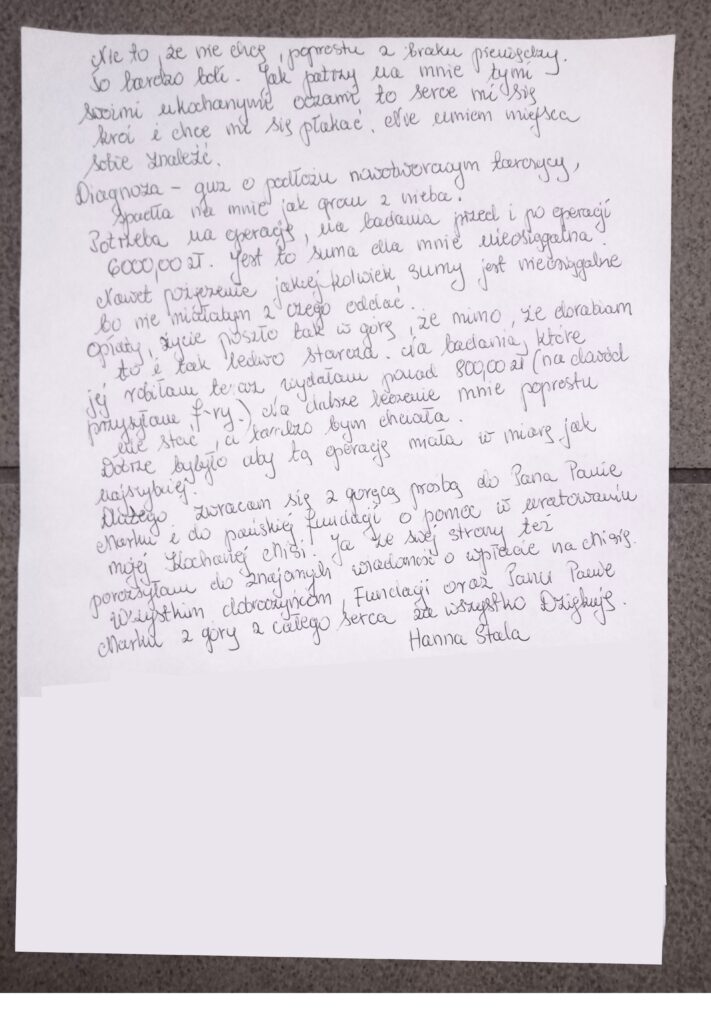 Nie to, że nie chcę, poprostu z braku pieniędzy.
To bardzo boli. Jak patrzy na mnie tymi
swoimi ukochanymi oczami to serce mi się
kroi i chce mi się płakać. Nie umiem miejsca
sobie znaleźć.
Diagnoza – guz o podłożu nowotworowym tarczycy,
spadła na mnie jak grom z nieba.
Potrzeba na operację, na badania przed i po operacji
6000,00 zł. Jest to suma dla mnie nieosiągalna.
Nawet pożyczenie jakiejkolwiek sumy jest nieosiągalne
bo nie miałabym z czego oddać.
Opłaty, życie poszło tak w górę, że mimo, że dorabiam
to i tak ledwo starcza. Na badania, które
jej robiłam teraz wydałam ponad 800,00 zł (na dowód
przysyłam f-ry.) Na dalsze leczenie mnie poprostu
nie stać, a bardzo bym chciała.
Dobrze byłoby aby tą operację miała w miarę jak
najszybciej.
Dlatego zwracam się z gorącą prośbą do Pana Panie
Marku i do pańskiej fundacji o pomoc w uratowaniu
mojej Kochanej Misi. Ja ze swej strony też
porozsyłam do znajomych wiadomość o wpłacie na Misię.
Wszystkim dobroczyńcom, Fundacji oraz Panu Panie
Marku z góry z całego serca za wszystko Dziękuję.
Hanna Stala